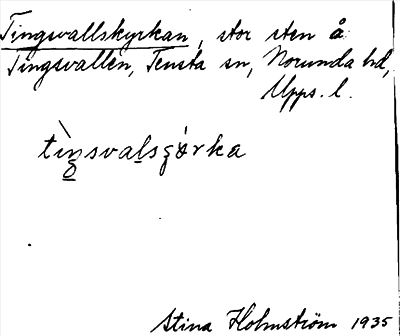 Tingsvallskyrkan, stor sten å
Tingsvallen, Tensta sn, Norunda hd,
Upps. l.
Stina Holmström 1935